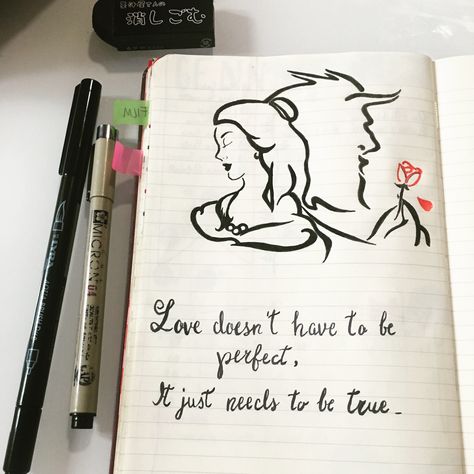 消しごむ
FILM
MICRON 04
Love doesn't have to be
perfect,
It just needs to be true_